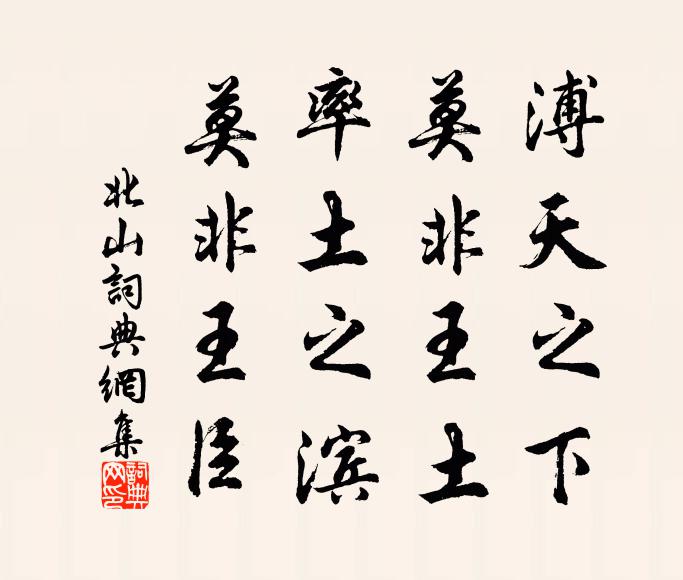 溥天之下
莫非王土
率土之滨
莫非王臣
北山詞典網集
詞典网印